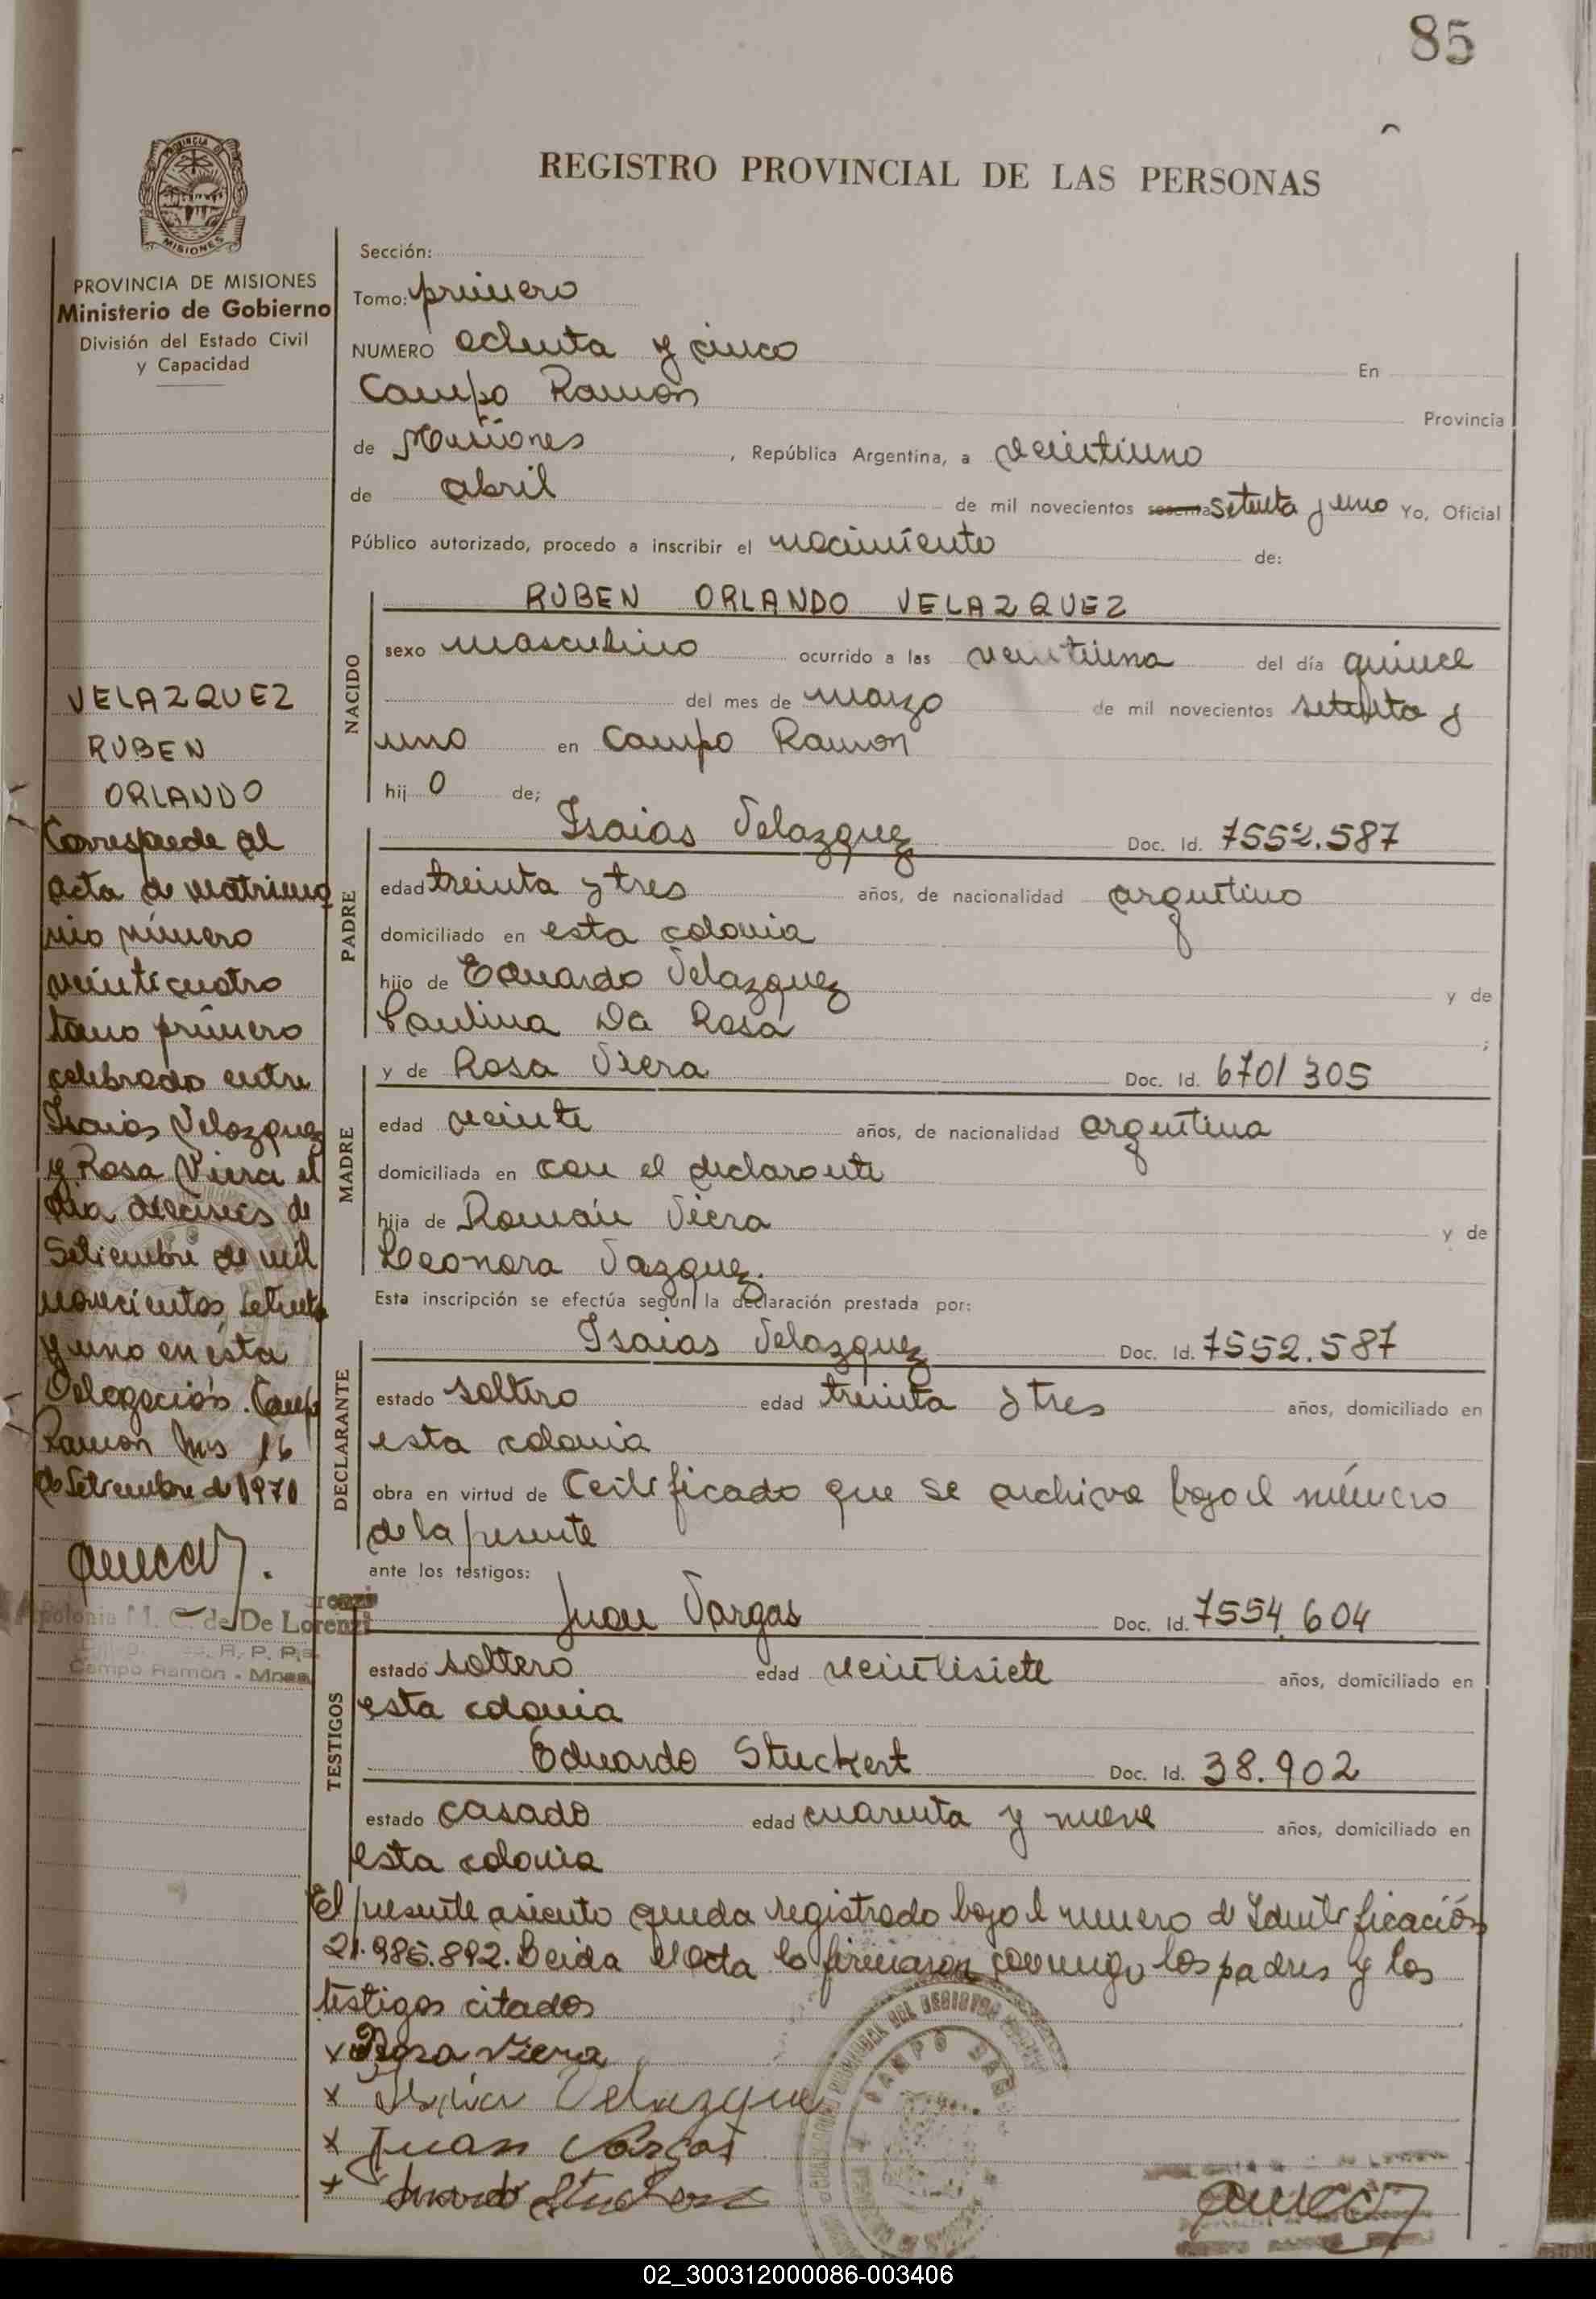 85
REGISTRO PROVINCIAL DE LAS PERSONAS
MISIONES
PROVINCIA DE MISIONES
Ministerio de Gobierno
División del Estado Civil
y Capacidad
VELAZQUEZ
RUBEN
ORLANDO
Corresponde al
acta de matrimo
nio número
veinticuatro
tomo primero
celebrado entre
Isaias Velazquez
y Rosa Viera el
dia dieciseis de
Setiembre de mil
novecientos setenta
y uno en esta
Delegación. Campo
Ramon Mns 16
de Setiembre de 1971
M. C. de De Lorenzi
R. P. Ps.
Campo Ramón - Mnes.
Sección:
Tomo: primero
NUMERO ochenta y cinco En
Campo Ramon Provincia
de Misiones, República Argentina, a veintiuno
de abril de mil novecientos sesenta setenta y uno Yo, Oficial
Público autorizado, procedo a inscribir el nacimiento de:
NACIDO
RUBEN ORLANDO VELAZQUEZ
sexo masculino ocurrido a las veintiuna del día quince
del mes de marzo de mil novecientos setenta y
uno en Campo Ramon
hij o de;
PADRE
Isaias Velazquez Doc. Id. 7552.587
edad treinta y tres años, de nacionalidad argentino
domiciliado en esta colonia
hijo de Eduardo Velazquez y de
Paulina Da Rosa ;
MADRE
y de Rosa Viera Doc. Id. 6701305
edad veinte años, de nacionalidad argentina
domiciliada en con el declarante
hija de Román Viera y de
Leonora Vazquez.
Esta inscripción se efectúa según la declaración prestada por:
DECLARANTE
Isaias Velazquez Doc. Id. 7552.587
estado soltero edad treinta y tres años, domiciliado en
esta colonia
obra en virtud de Certificado que se archiva bajo el número
de la presente
ante los testigos:
TESTIGOS
Juan Vargas Doc. Id. 7554.604
estado soltero edad veintisiete años, domiciliado en
esta colonia
Eduardo Stuckert Doc. Id. 38.902
estado casado edad cuarenta y nueve años, domiciliado en
esta colonia
El presente asiento queda registrado bajo el numero de Identificación
21.985.892. Leida el acta la firmaron conmigo los padres y los
testigos citados
x Rosa Viera
x Isaias Velazquez
x Juan Vargas
x Eduardo Stuckert
02_300312000086-003406